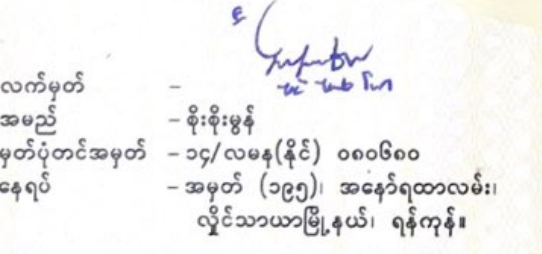 လက်မှတ် –
အမည် – စိုးစိုးမွန်
မှတ်ပုံတင်အမှတ် – ၁၄/လမန(နိုင်) ၀၈၀၆၈၀
နေရပ် – အမှတ် (၁၉၅)၊ အနော်ရထာလမ်း၊
လှိုင်သာယာမြို့နယ်၊ ရန်ကုန်။